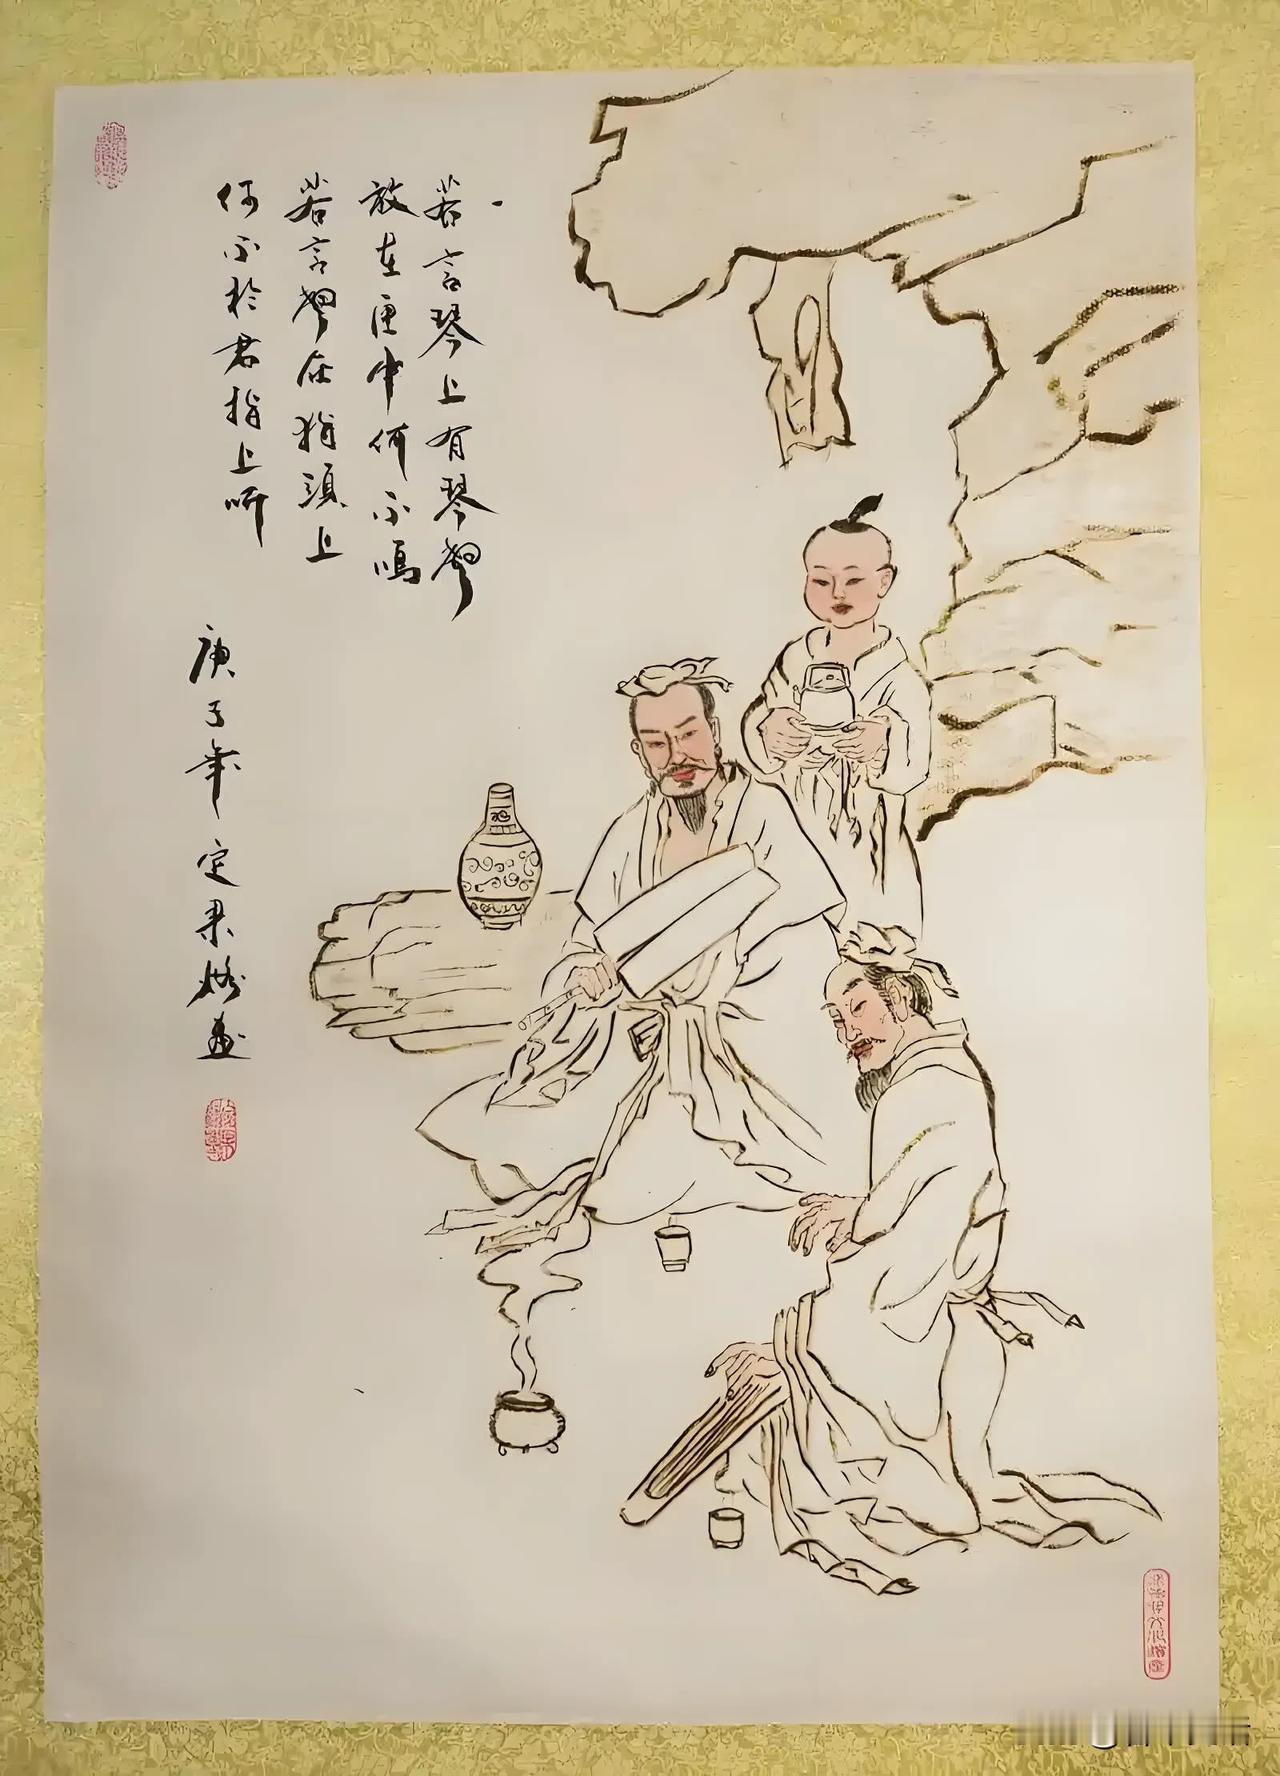 若言琴上有琴聲
放在匣中何不鳴
若言聲在指頭上
何不於君指上听
庚子年定果畫